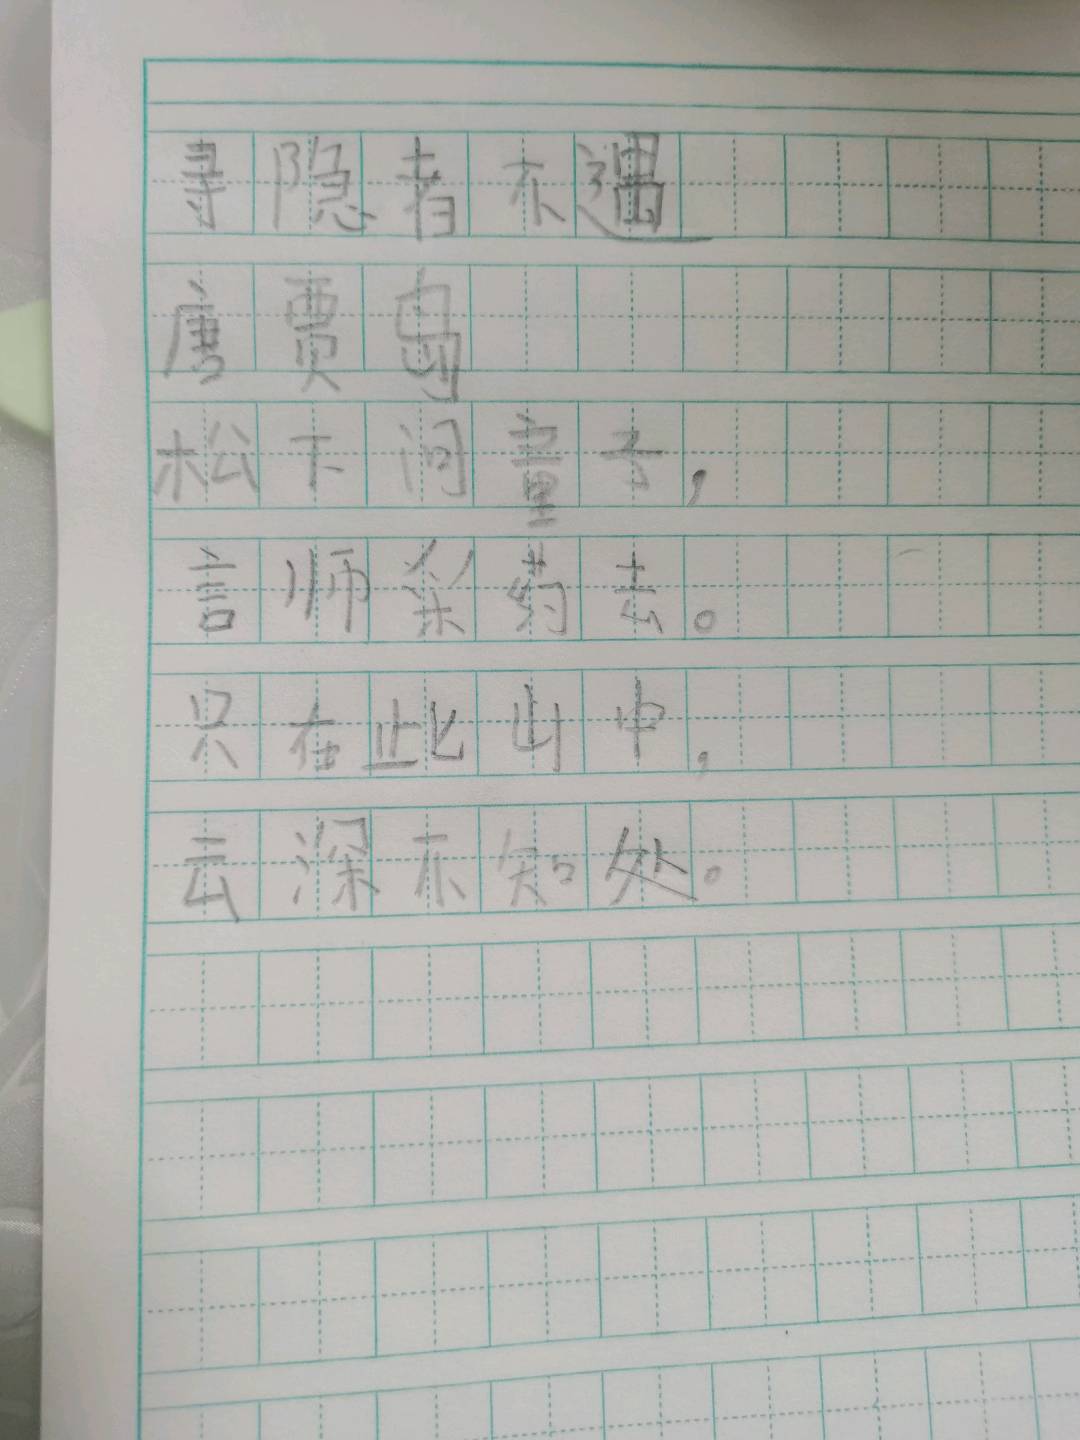 寻隐者不遇
唐贾岛
松下问童子,
言师采药去。
只在此山中,
云深不知处。